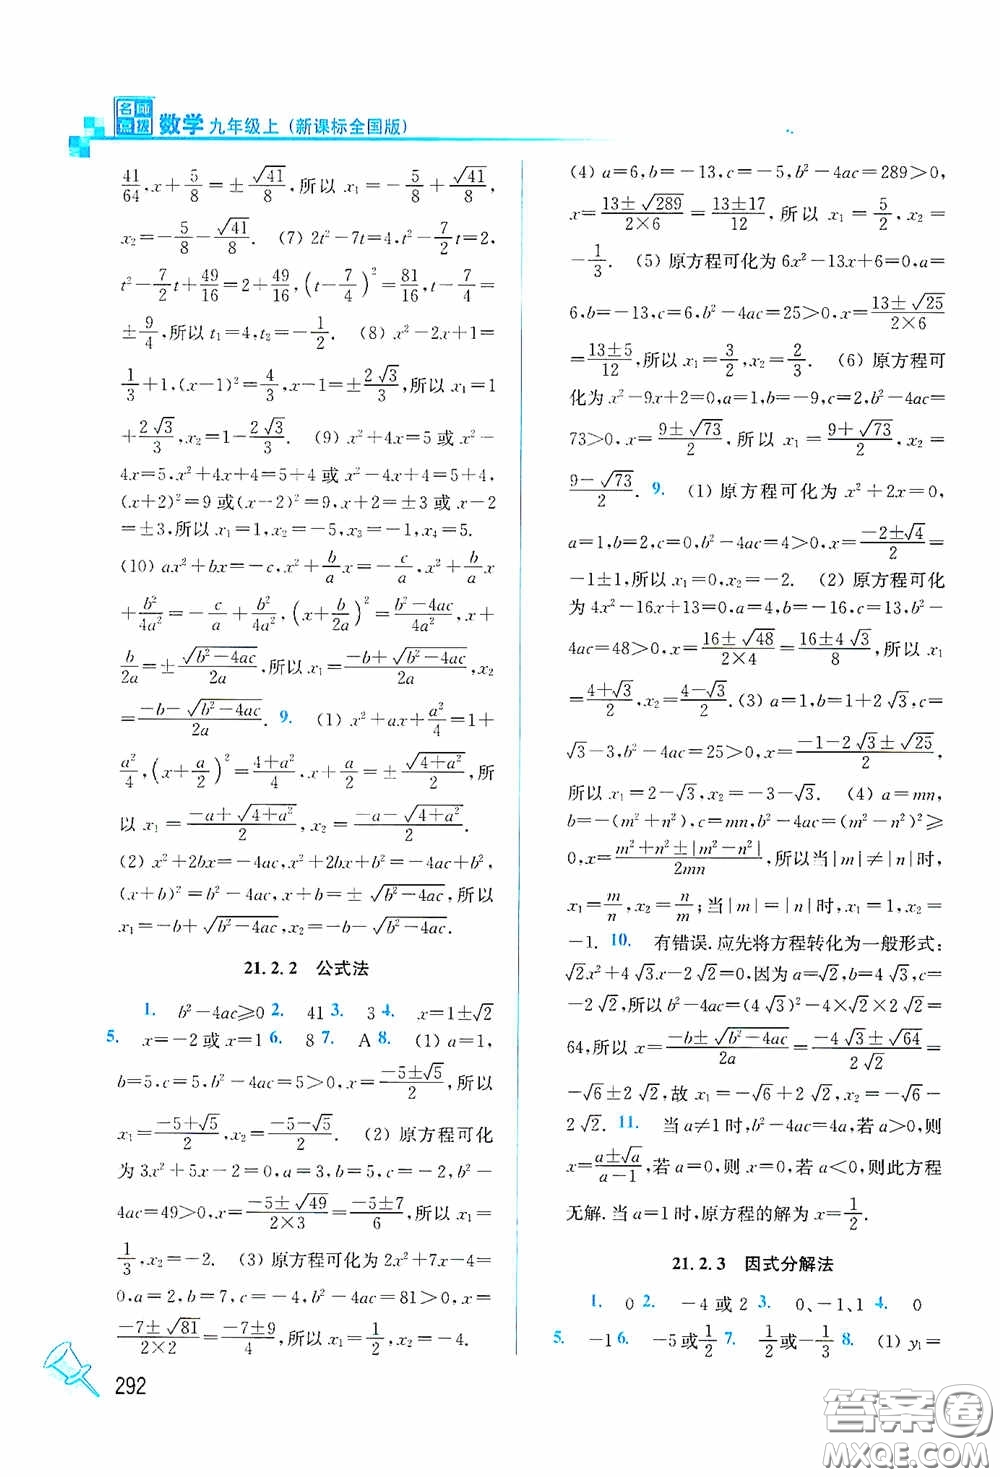 名师点拨 数学 九年级上(新课标全国版)
41/64, x+5/8=±√41/8, 所以 x₁=-5/8+√41/8,
x₂=-5/8-√41/8. (7) 2t²-7t=4, t²-7/2t=2,
t²-7/2t+49/16=2+49/16, (t-7/4)²=81/16, t-7/4=
±9/4, 所以 t₁=4, t₂=-1/2. (8) x²-2x+1=
1/3+1, (x-1)²=4/3, x-1=±2√3/3, 所以 x₁=1
+2√3/3, x₂=1-2√3/3. (9) x²+4x=5 或 x²-
4x=5, x²+4x+4=5+4 或 x²-4x+4=5+4,
(x+2)²=9 或(x-2)²=9, x+2=±3 或 x-2
=±3, 所以 x₁=1, x₂=-5, x₃=-1, x₄=5.
(10) ax²+bx=-c, x²+b/a x=-c/a, x²+b/a x
+b²/4a²=-c/a+b²/4a², (x+b/2a)²=(b²-4ac)/4a², x+
b/2a=±√(b²-4ac)/2a, 所以 x₁=(-b+√(b²-4ac))/2a, x₂
=(-b-√(b²-4ac))/2a. 9. (1) x²+ax+a²/4=1+
a²/4, (x+a/2)²=(4+a²)/4, x+a/2=±√(4+a²)/2, 所
以 x₁=(-a+√(4+a²))/2, x₂=(-a-√(4+a²))/2.
(2) x²+2bx=-4ac, x²+2bx+b²=-4ac+b²,
(x+b)²=b²-4ac, x+b=±√(b²-4ac), 所以
x₁=-b+√(b²-4ac), x₂=-b-√(b²-4ac).
21.2.2 公式法
1. b²-4ac≥0 2. 41 3. 3 4. x=1±√2
5. x=-2或x=1 6. 8 7. A 8. (1) a=1,
b=5, c=5, b²-4ac=5>0, x=(-5±√5)/2, 所以
x₁=(-5+√5)/2, x₂=(-5-√5)/2. (2) 原方程可化
为 3x²+5x-2=0, a=3, b=5, c=-2, b²-
4ac=49>0, x=(-5±√49)/(2×3)=(-5±7)/6, 所以 x₁=
1/3, x₂=-2. (3) 原方程可化为 2x²+7x-4=
0, a=2, b=7, c=-4, b²-4ac=81>0, x=
(-7±√81)/(2×2)=(-7±9)/4, 所以 x₁=1/2, x₂=-4.
292
(4) a=6, b=-13, c=-5, b²-4ac=289>0,
x=(13±√289)/(2×6)=(13±17)/12, 所以 x₁=5/2, x₂=
-1/3. (5) 原方程可化为 6x²-13x+6=0, a=
6, b=-13, c=6, b²-4ac=25>0, x=(13±√25)/(2×6)
=(13±5)/12, 所以 x₁=3/2, x₂=2/3. (6) 原方程可
化为 x²-9x+2=0, a=1, b=-9, c=2, b²-4ac=
73>0, x=(9±√73)/2, 所以 x₁=(9+√73)/2, x₂=
(9-√73)/2. 9. (1) 原方程可化为 x²+2x=0,
a=1, b=2, c=0, b²-4ac=4>0, x=(-2±√4)/2=
-1±1, 所以 x₁=0, x₂=-2. (2) 原方程可化
为 4x²-16x+13=0, a=4, b=-16, c=13, b²-
4ac=48>0, x=(16±√48)/(2×4)=(16±4√3)/8, 所以 x₁
=(4+√3)/2, x₂=(4-√3)/2. (3) a=1, b=1+2√3, c=
√3-3, b²-4ac=25>0, x=(-1-2√3±√25)/2,
所以 x₁=2-√3, x₂=-3-√3. (4) a=mn,
b=-(m²+n²), c=mn, b²-4ac=(m²-n²)²≥
0, x=(m²+n²±|m²-n²|)/2mn, 所以当|m|≠|n|时,
x₁=m/n, x₂=n/m; 当|m|=|n|时, x₁=1, x₂=
-1. 10. 有错误. 应先将方程转化为一般形式:
√2x²+4√3x-2√2=0, 因为 a=√2, b=4√3, c=
-2√2, 所以 b²-4ac=(4√3)²-4×√2×2√2=
64, 所以 x=(-b±√(b²-4ac))/2a=(-4√3±√64)/2√2=
-√6±2√2, 故 x₁=-√6+2√2, x₂=-√6-
2√2. 11. 当 a≠1 时, b²-4ac=4a, 若 a>0, 则
x=(a±√a)/(a-1), 若 a=0, 则 x=0; 若 a<0, 则此方程
无解. 当 a=1 时, 原方程的解为 x=1/2.
21.2.3 因式分解法
1. 0 2. -4 或 2 3. 0、-1、1 4. 0
5. -1 6. -5或1/2 7. 1/2或-1/2 8. (1) y₁=
答案圈
MXQE.COM